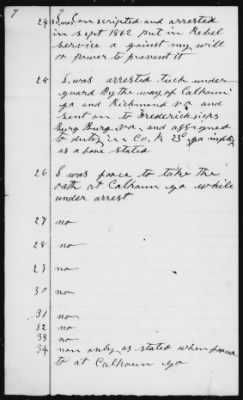 7
24 I was conscripted and arrested
in sept 1862 put in Rebel
service a gainst my will
or power to prevent it
25 I was arrested tuck under
guard By the way of Calhoun
ga and Richmond va and
sent on to Fredericksicps
Burg Burg va and assigned
to duty in Co. K 23d ga infty
as a bove stated
26 I was force to take the
oath at Calhoun ga while
under arrest
27 no
28 no
29 no
30 no
31 no
32 no
33 no
34 non only as stated when
to at Calhoun ga